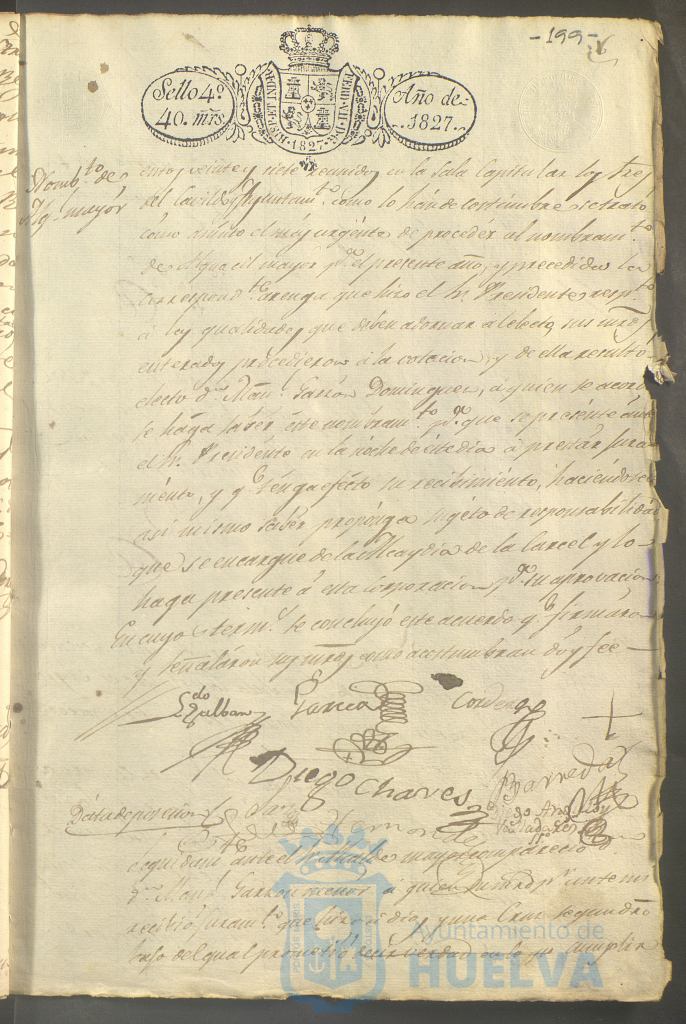 -199-
Sello 4º
40. mrs
HISPAN. ET IND. REX
FERD. VII. D. G.
1827
Año de
1827.
Nomb.to de
Alg. mayor
entos veinte y siete reunidos en la Sala Capitular los Sres
del Cavildo y Ayuntam.to como lo han de costumbre se trato
como asunto el mas urgente de proceder al nombram.to
de Alguacil mayor p.a el presente año, y precedida la
correspond.te arenga que hizo el Sr. Presidente resp.to
a las qualidades que deben adornar al electo, sus mrds
enterados procedieron a la votacion y de ella resulto
electo dn. Man.l Garzon Dominguez, a quien se acordó
se haga saber este nombram.to p.a que se presente ante
el Sr. Presidente en la noche de este dia a prestar Jura
mento, y q.e tenga efecto su recibimiento, haciendosele
asi mismo saber proponga sugeto de responsabilidad
que se encargue de la Alcaydia de la Carcel y lo
haga presente a esta Corporacion p.a su aprovacion
En cuyos term.s se concluyó este acuerdo q.e firmaron
y señalaron sus mrds como acostumbran doy fee
Ldo
Zalban
Garcia
Cordero
Diego Chaves
Barreda
Data de posesion
Hernandez
Seguidam.te ante el Sr. Alcalde mayor comparecio
dn. Man.l Garzon menor a quien su mrd p.r ante mi
recibió juram.to que hizo a dios y una Cruz segun dro
bajo del qual prometió decir verdad en lo q.e cumplir
Ayuntamiento de
HUELVA